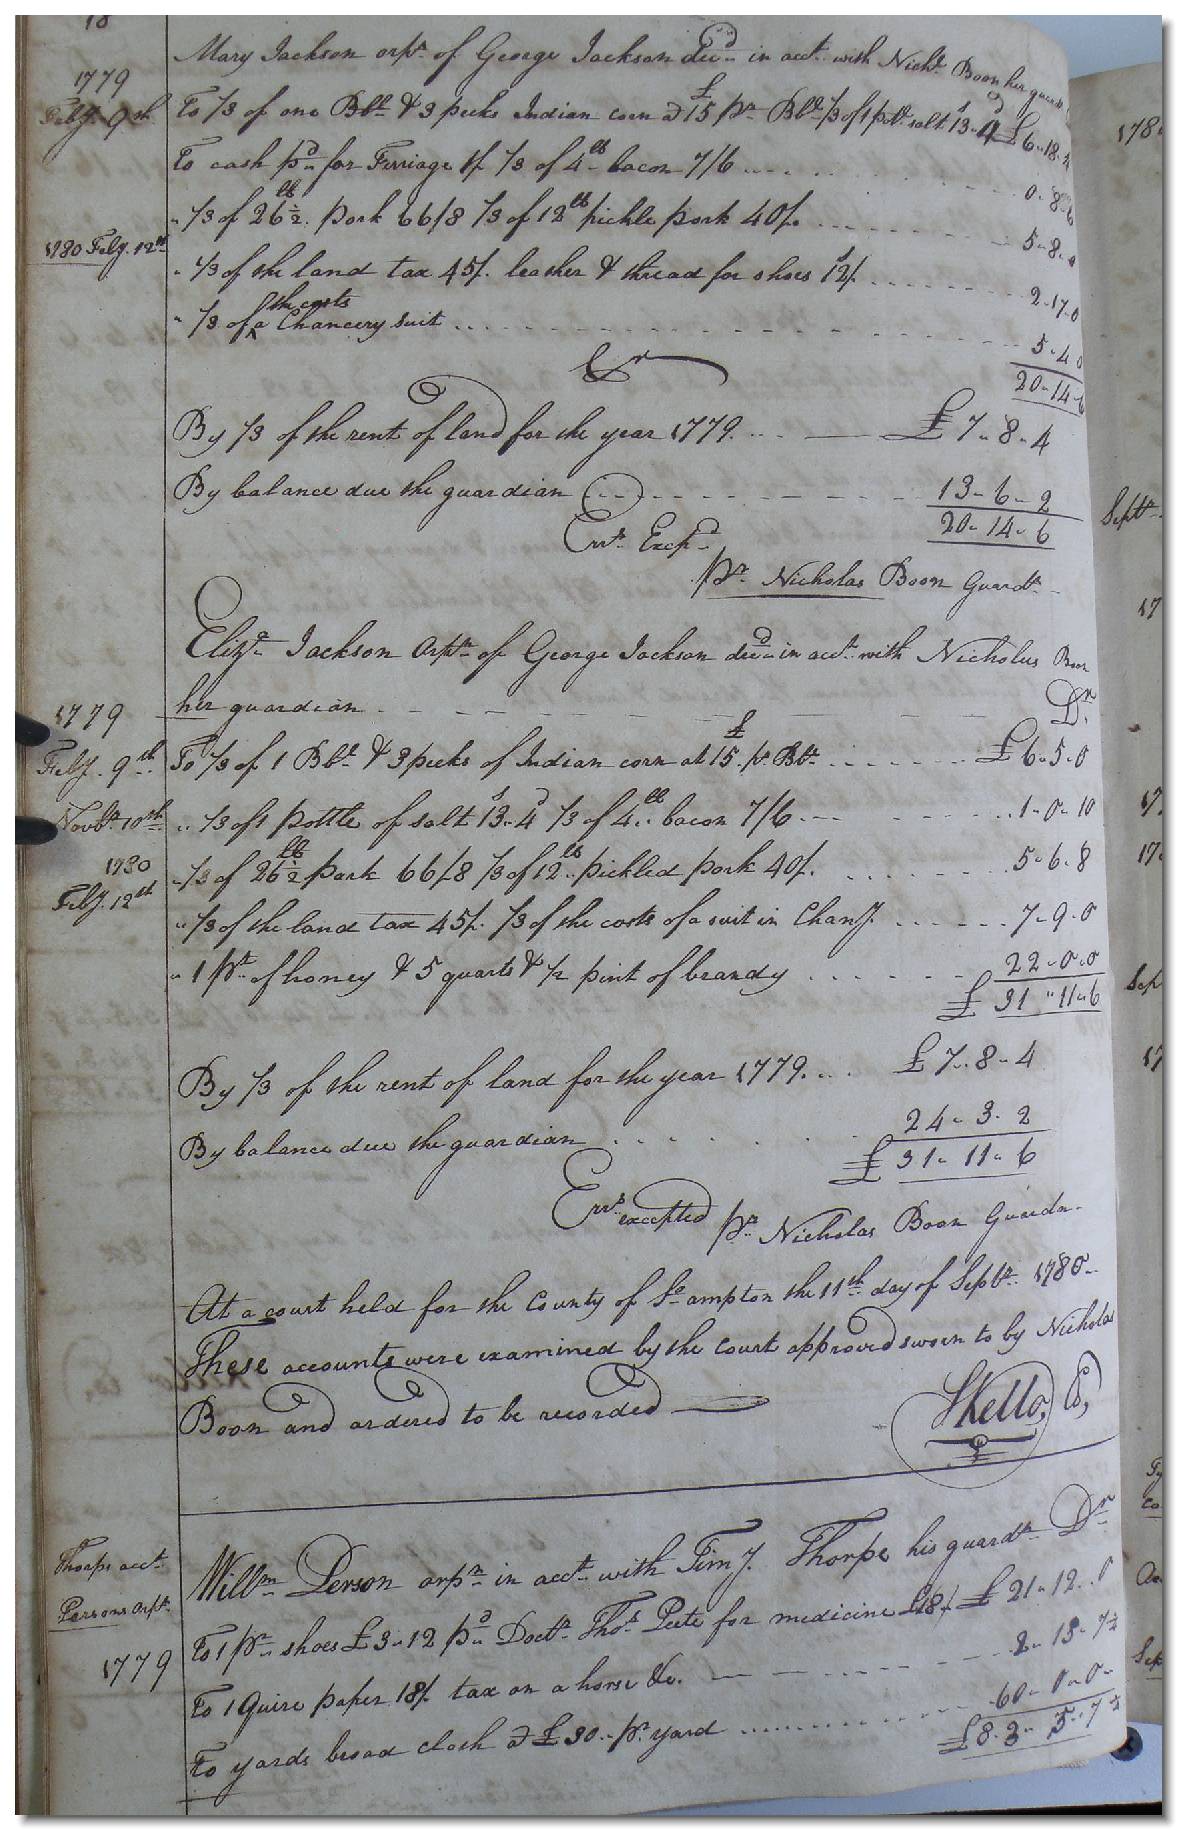 18
Mary Jackson orpn. of George Jackson decd. in acct. with Nichs. Boon her guardn
1779
Feby. 9th To 1/3 of one Bbl. & 3 pecks Indian corn @ £15 pr. Bbl. 1/3 of 1 pottl. salt 13s-4d £6-18-4
To cash pd. for Ferriage 1/. 1/3 of 4lb. bacon 7/6 0-8-6
" 1/3 of 26 1/2 lb. pork 66/8 1/3 of 12lb pickle pork 40/. 5-8-
1780 Feby. 12th " 1/3 of the land tax 45/. leather & thread for shoes 12/. 2-17-0
" 1/3 of the costs a Chancery suit 5-4-0
20-14-6
Cr
By 1/3 of the rent of land for the year 1779. £7-8-4
By balance due the guardian 13-6-2
20-14-6
Errs. Excpd.
Pr. Nicholas Boon Guardn.
Elizth. Jackson Orpn. of George Jackson decd. in acct. with Nicholas Boon
her guardian Dr.
1779
Feby. 9th. To 1/3 of 1 Bbl. & 3 pecks of Indian corn at £15. pr. Bbl. £6-5-0
Novbr. 10th " 1/3 of 1 pottle of salt 13s-4d 1/3 of 4lb. bacon 7/6 1-0-10
1780
Feby. 12th " 1/3 of 26 1/2 lb pork 66/8 1/3 of 12lb. pickled pork 40/. 5-6-8
" 1/3 of the land tax 45/. 1/3 of the costs of a suit in Chany. 7-9-0
" 1 pt. of honey & 5 quarts & 1/2 pint of brandy 22-0-0
£ 31"11-6
By 1/3 of the rent of land for the year 1779. £7-8-4
By balance due the guardian 24-3-2
£31-11-6
Errs. excepted Pr. Nicholas Boon Guardn.
At a court held for the County of So.ampton the 11th day of Septr. 1780
These accounts were examined by the court approved sworn to by Nicholas
Boon and ordered to be recorded
SKello, C,
Thorps acct.
Persons orpn.
Willm. Person orpn. in acct. with Timy. Thorpe his guardn. Dr
1779 To 1 pr. shoes £3-12 pd. Doctr. Thos. Peete for medicine £18/. £21-12-0
To 1 Quire paper 18/. tax on a horse &c. 2-13-7 1/2
To yards broad cloth @ £30. pr. yard 60-0-0
£83-5-7 1/2